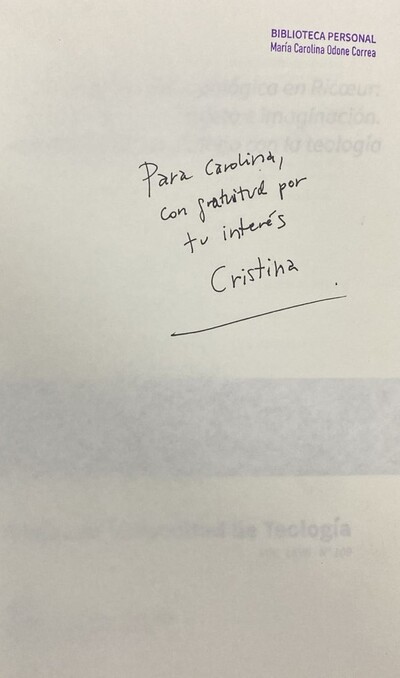 BIBLIOTECA PERSONAL
María Carolina Odone Correa
en Ricœur:
imaginación.
con la teología
Para Carolina,
con gratitud por
tu interés
Cristina
de Teología